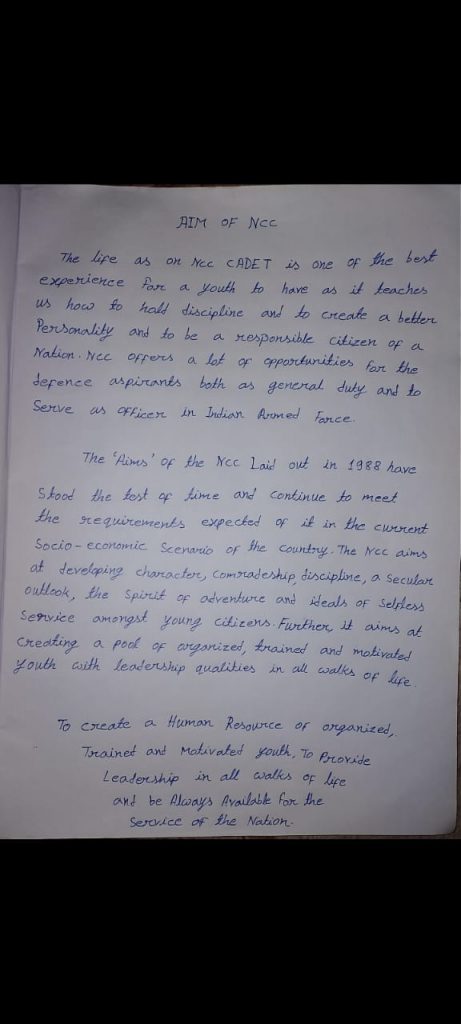 AIM OF NCC
The life as on NCC CADET is one of the best
experience for a youth to have as it teaches
us how to hold discipline and to create a better
Personality and to be a responsible citizen of a
Nation. NCC offers a lot of opportunities for the
defence aspirants both as general duty and to
Serve as officer in Indian Armed Force.
The 'Aims' of the NCC Laid out in 1988 have
Stood the test of time and continue to meet
the requirements expected of it in the current
Socio-economic Scenario of the Country. The NCC aims
at developing character, comradeship, discipline, a secular
outlook, the spirit of adventure and ideals of Selfless
Service amongst young citizens. Further, it aims at
Creating a pool of organized, trained and motivated
youth with leadership qualities in all walks of life.
To create a Human Resource of organized,
Trained and Motivated youth, To Provide
Leadership in all walks of life
and be Always Available for the
Service of the Nation.